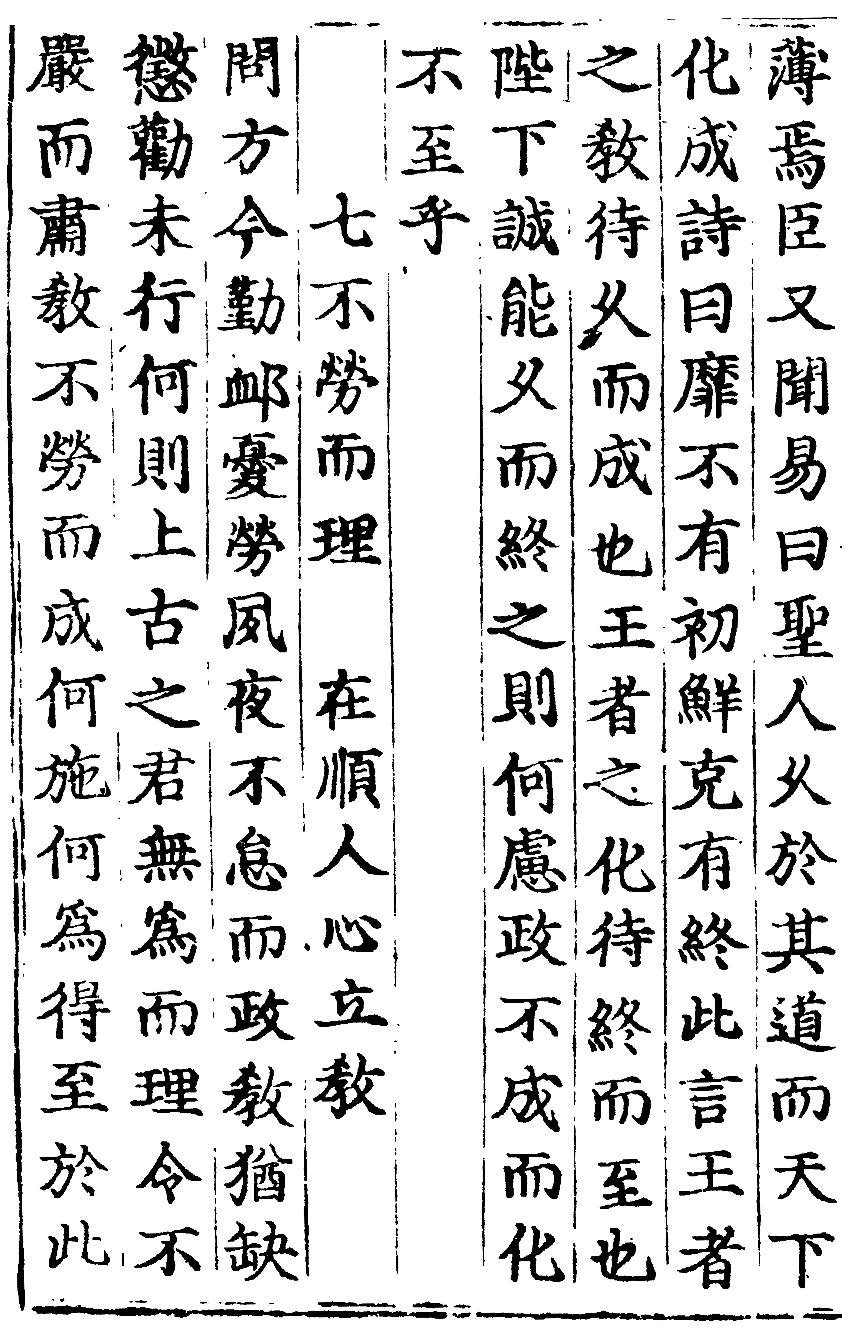 薄焉臣又聞易曰聖人久於其道而天下
化成詩曰靡不有初鮮克有終此言王者
之教待久而成也王者之化待終而至也
陛下誠能久而終之則何慮政不成而化
不至乎
七不勞而理　在順人心立教
問方今勤卹憂勞夙夜不怠而政教猶缺
懲勸未行何則上古之君無為而理令不
嚴而肅教不勞而成何施何為得至於此